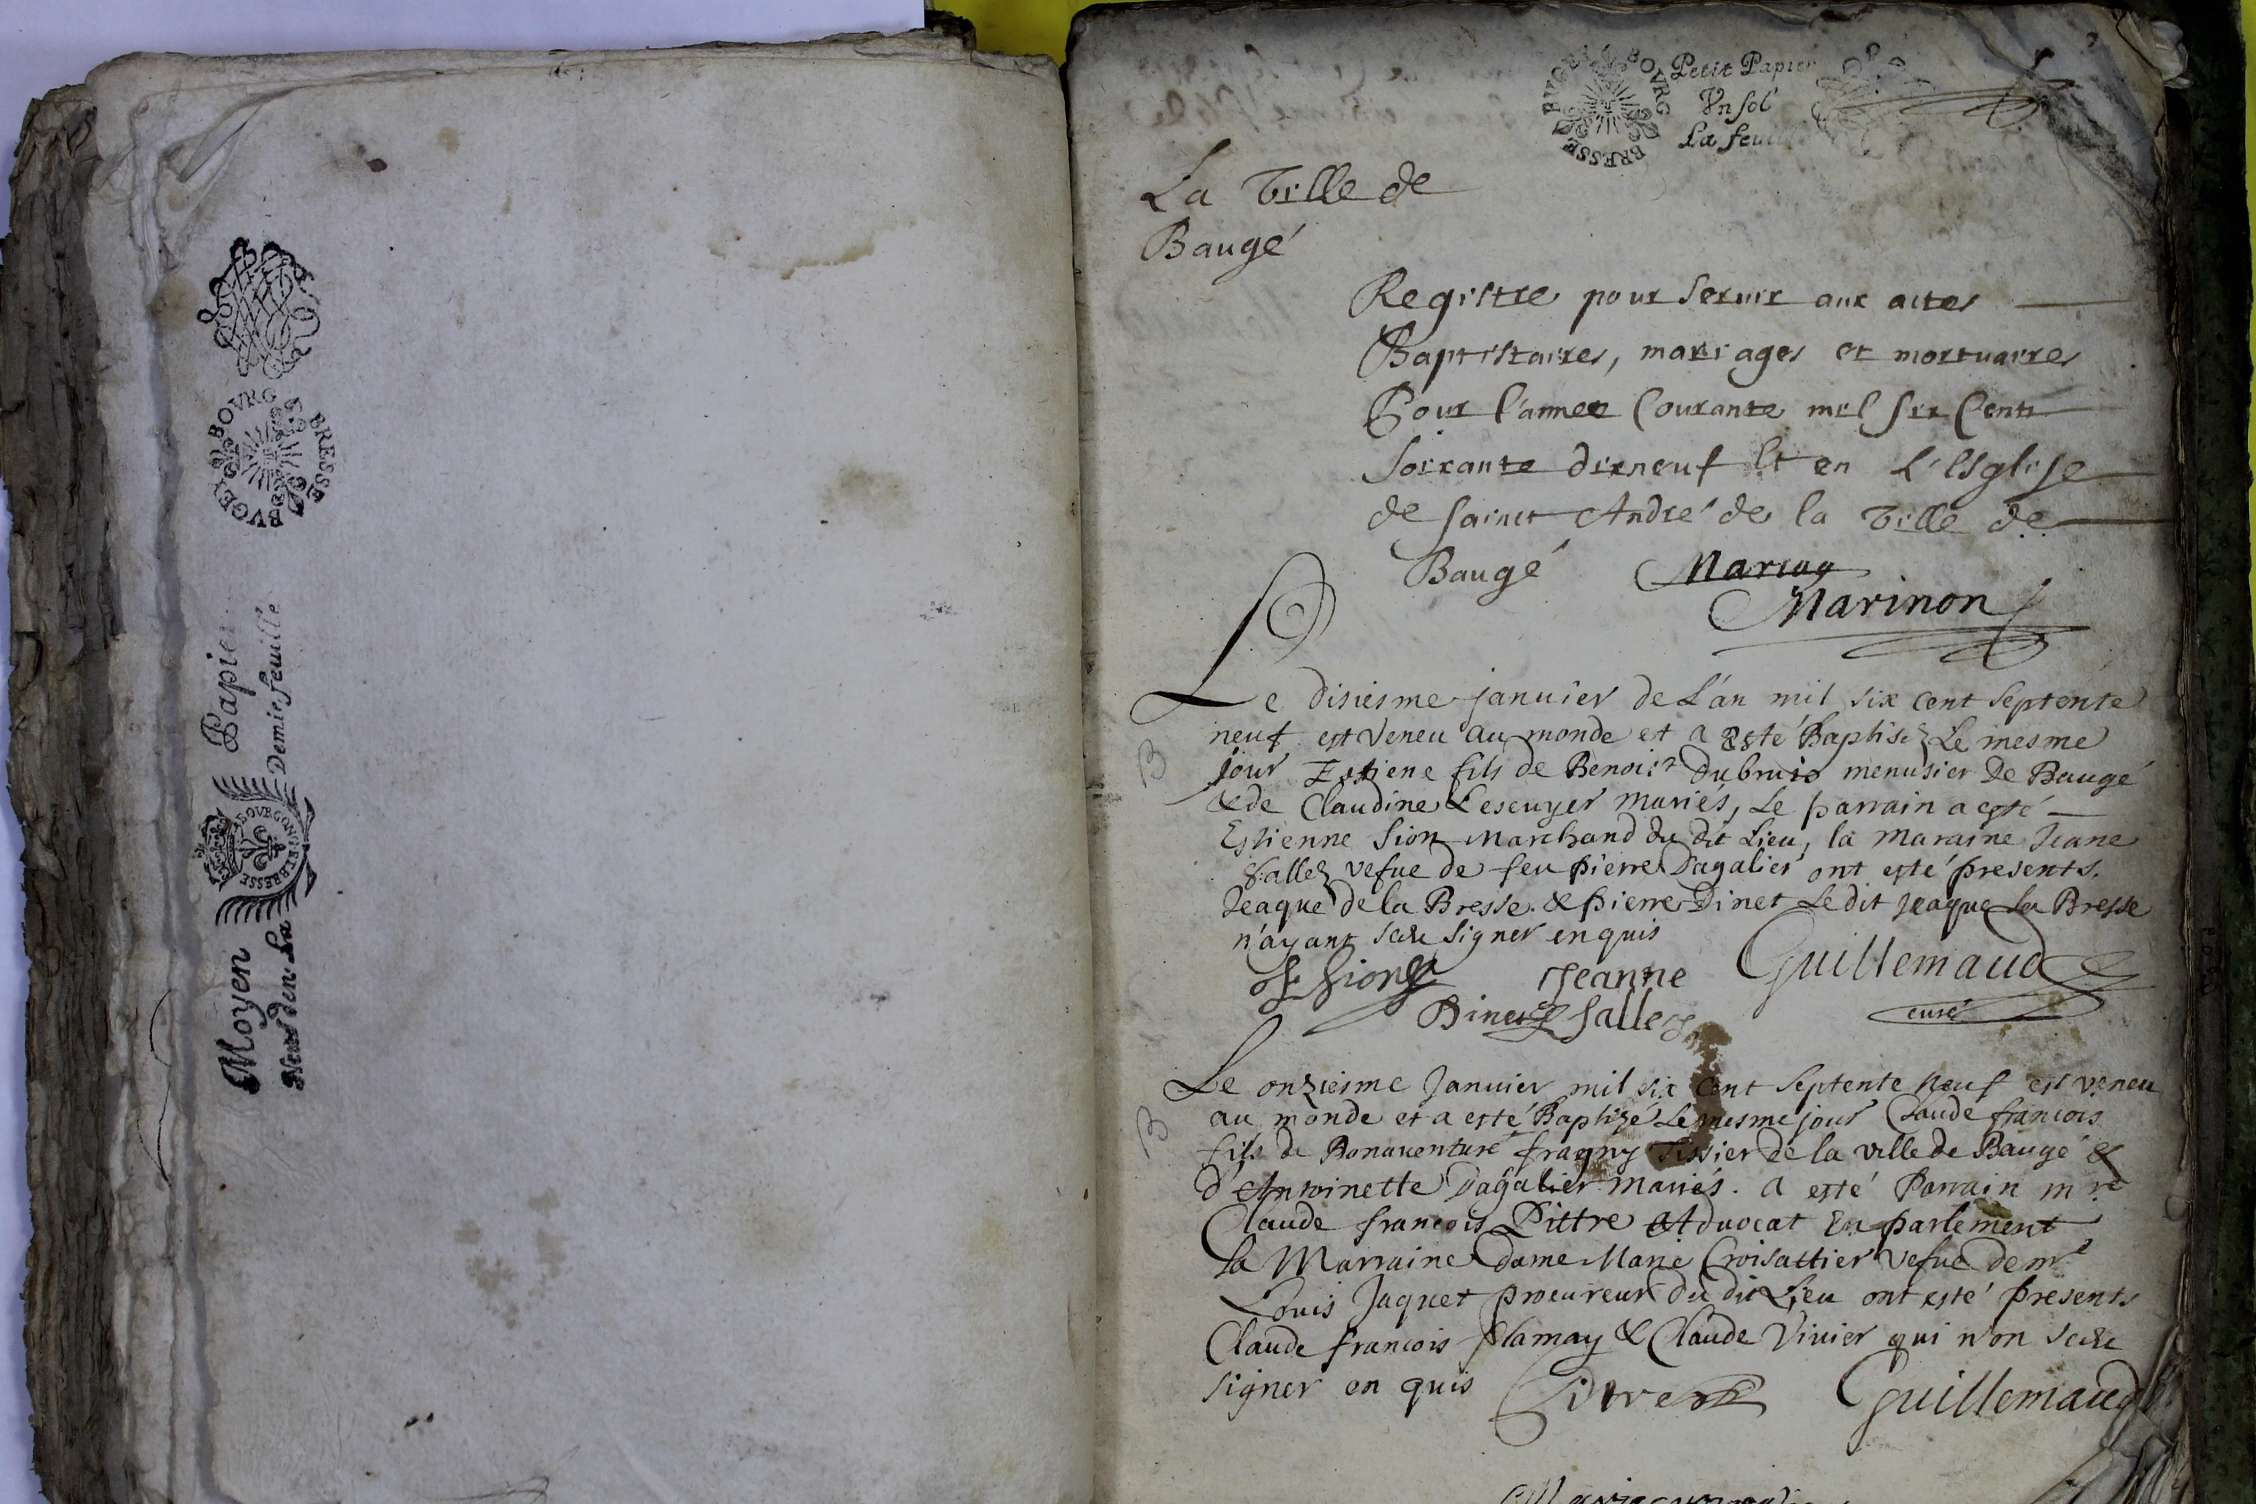 BOVRG
BRESSE
BVGEY
Moyen Papier
Neuf den. La Demie feuille
BOVRGONGNE ET BRESSE
BVGEY BOVRG BRESSE
Petit Papier
Vn sol
La feuille
La Ville de
Baugé
Registre pour seruir aux actes
Baptistaires, mariages et mortuaires
Pour l'annee Courante mil six Cents
soixante dixneuf Et en L'Esglise
de sainct André de la Ville de
Baugé
Marinon
Le disiesme januier de L'an mil six cent septente
neuf est veneu au monde et a esté Baptisé Le mesme
jour Estiene fils de Benoist dubruis menusier de Baugé
& de Claudine Lescuyer mariés, Le parrain a esté
Estienne Sion Marchand du dit Lieu, la Maraine Jeane
Sallez vefue de feu pierre Dagalier ont esté presents.
Jeaque de la Bresse & pierre Dinet Le dit Jeaque La Bresse
n'ayant sceu signer enquis
E Sion Jeanne Guillemaud
Dinet Sallez curé
Le onziesme Januier mil six cent septente neuf est veneu
au monde et a esté Baptizé Le mesme jour Claude francois
fils de Bonauenture fragny tissier de la ville de Baugé &
d'Antoinette Dagalier mariés. a esté Parrain mre
Claude francois Pittre Aduocat En parlement
la Marraine dame Marie Croisattier vefue de mre
Louis Jaquet procureur du dit Lieu ont esté presents
Claude francois flamay & Claude Viuier qui n'on sceu
signer en quis Guillemaud
B
B